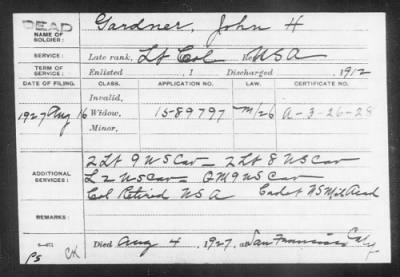 DEAD
NAME OF SOLDIER: Gardner, John H
SERVICE: Late rank, Lt Col USA
TERM OF SERVICE: Enlisted , 1 Discharged 1912
DATE OF FILING. CLASS. APPLICATION NO. LAW. CERTIFICATE NO.
Invalid,
1927 Aug 16 Widow, 1589797 M/26 A-3-26-28
Minor,
2 Lt 9 US Cav — 2 Lt 8 US Cav
ADDITIONAL SERVICES: L 2 US Cav — QM 9 US Cav
Col Retired US A Cadet US Mil Acad
REMARKS:
Died Aug 4, 1927, at San Francisco Calif
PS CK